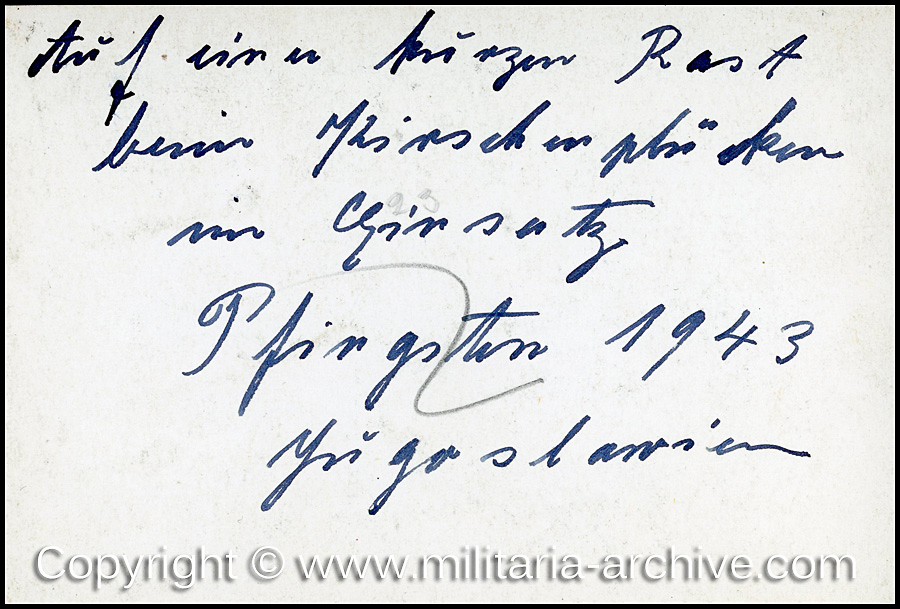 Auf einer kurzen Rast
beim Kirschenpflücken
im Einsatz
Pfingsten 1943
Jugoslawien
Copyright © www.militaria-archive.com